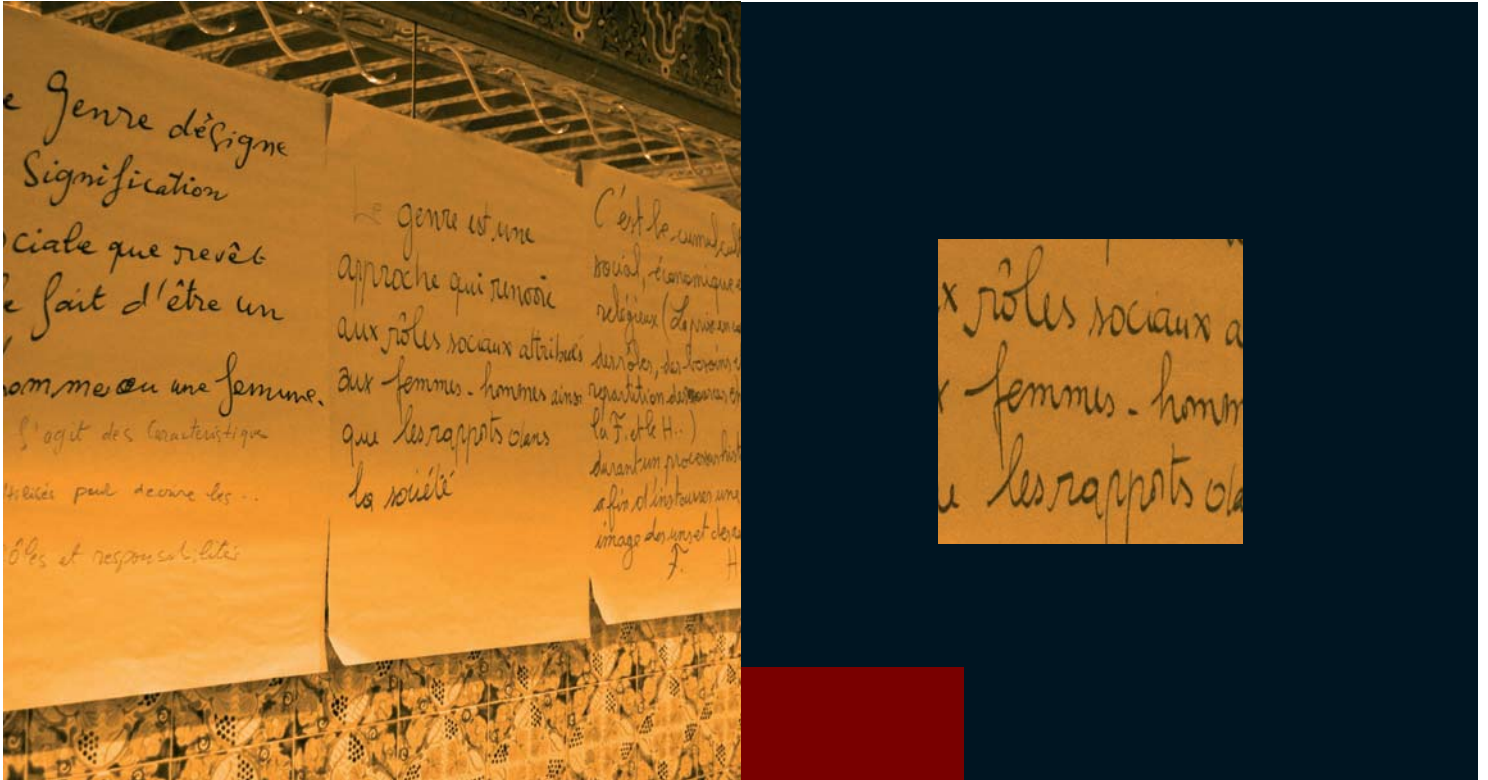 e Genre désigne
Signification
ciale que revêt
e fait d'être un
omme ou une femme.
s'agit des Caractéristique
utilisés pour décrire les ..
ôles et responsabilités
Le genre est une
approche qui renvoie
aux rôles sociaux attribués
aux femmes - hommes ainsi
que les rapports dans
la société
C'est le cumul cult
social, économique e
religieux (La prise en
des rôles, des besoins
repartition des
la F. et le H..)
durant un processus hist
afin d'instaurer une
image des uns et des
F. H
x rôles sociaux a
x femmes - homm
e les rapports da